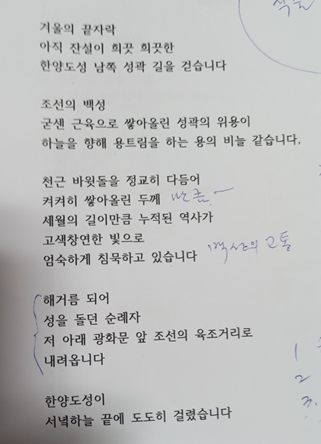 겨울의 끝자락
아직 잔설이 희끗 희끗한
한양도성 남쪽 성곽 길을 걷습니다
조선의 백성
굳센 근육으로 쌓아올린 성곽의 위용이
하늘을 향해 용트림을 하는 용의 비늘 같습니다.
천근 바윗돌을 정교히 다듬어
켜켜히 쌓아올린 두께 만큼
세월의 길이만큼 누적된 역사가
고색창연한 빛으로
엄숙하게 침묵하고 있습니다 백성의 고통
해거름 되어
성을 돌던 순례자
저 아래 광화문 앞 조선의 육조거리로
내려옵니다
1
2
3.
한양도성이
서녘하늘 끝에 도도히 걸렸습니다